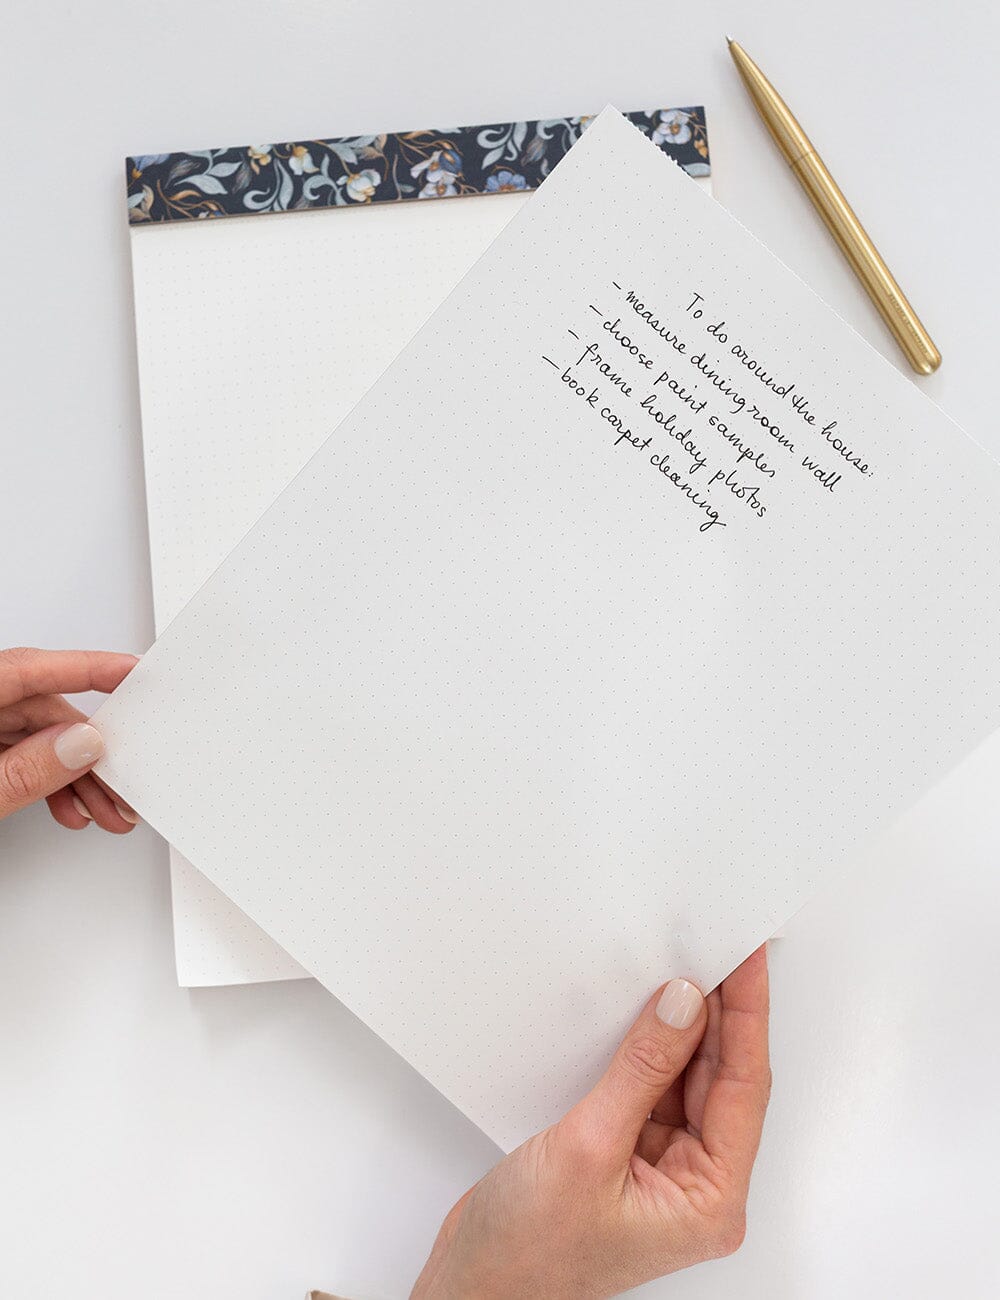 To do around the house:
- measure dining room wall
- choose paint samples
- frame holiday photos
- book carpet cleaning